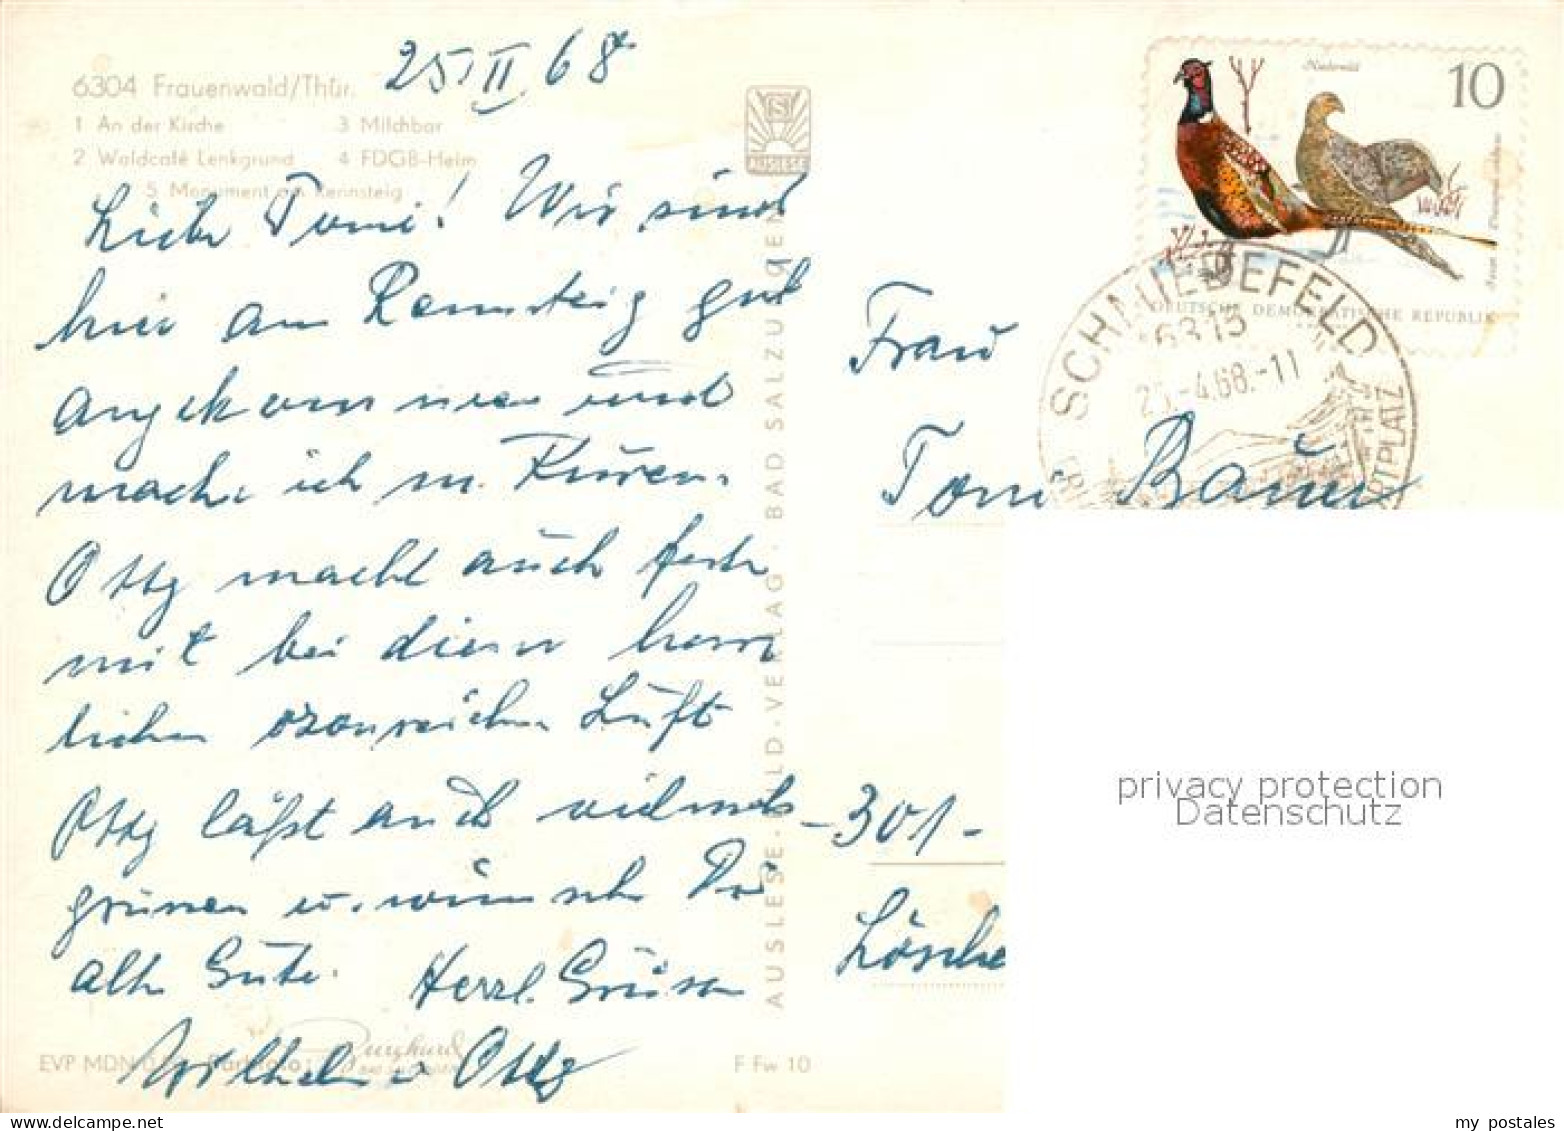 25. II. 68
6304 Frauenwald/Thür.
1 An der Kirche
3 Milchbar
2 Waldcafé Lenkgrund
4 FDGB-Heim
5 Monument am Rennsteig
Liebe Toni! Wir sind
hier am Rennsteig gut
angekommen und
mache ich m. Kuren.
macht auch feste
mit bei dieser herr
lichen ozonreichen Luft
läßt auch vielmals
grüssen u. wünscht Dir
alles Gute. Herzl. Grüsse
Wilhelm u
EVP MDN
F Fw 10
AUSLESE-BILD-VERLAG · BAD SALZUNGEN
10
Niederwild
DEUTSCHE DEMOKRATISCHE REPUBLIK
SCHMIEDEFELD
6315
-4.68.-11
Frau
Toni Bauer
-301-
Lösche
privacy protection
Datenschutz
my postales